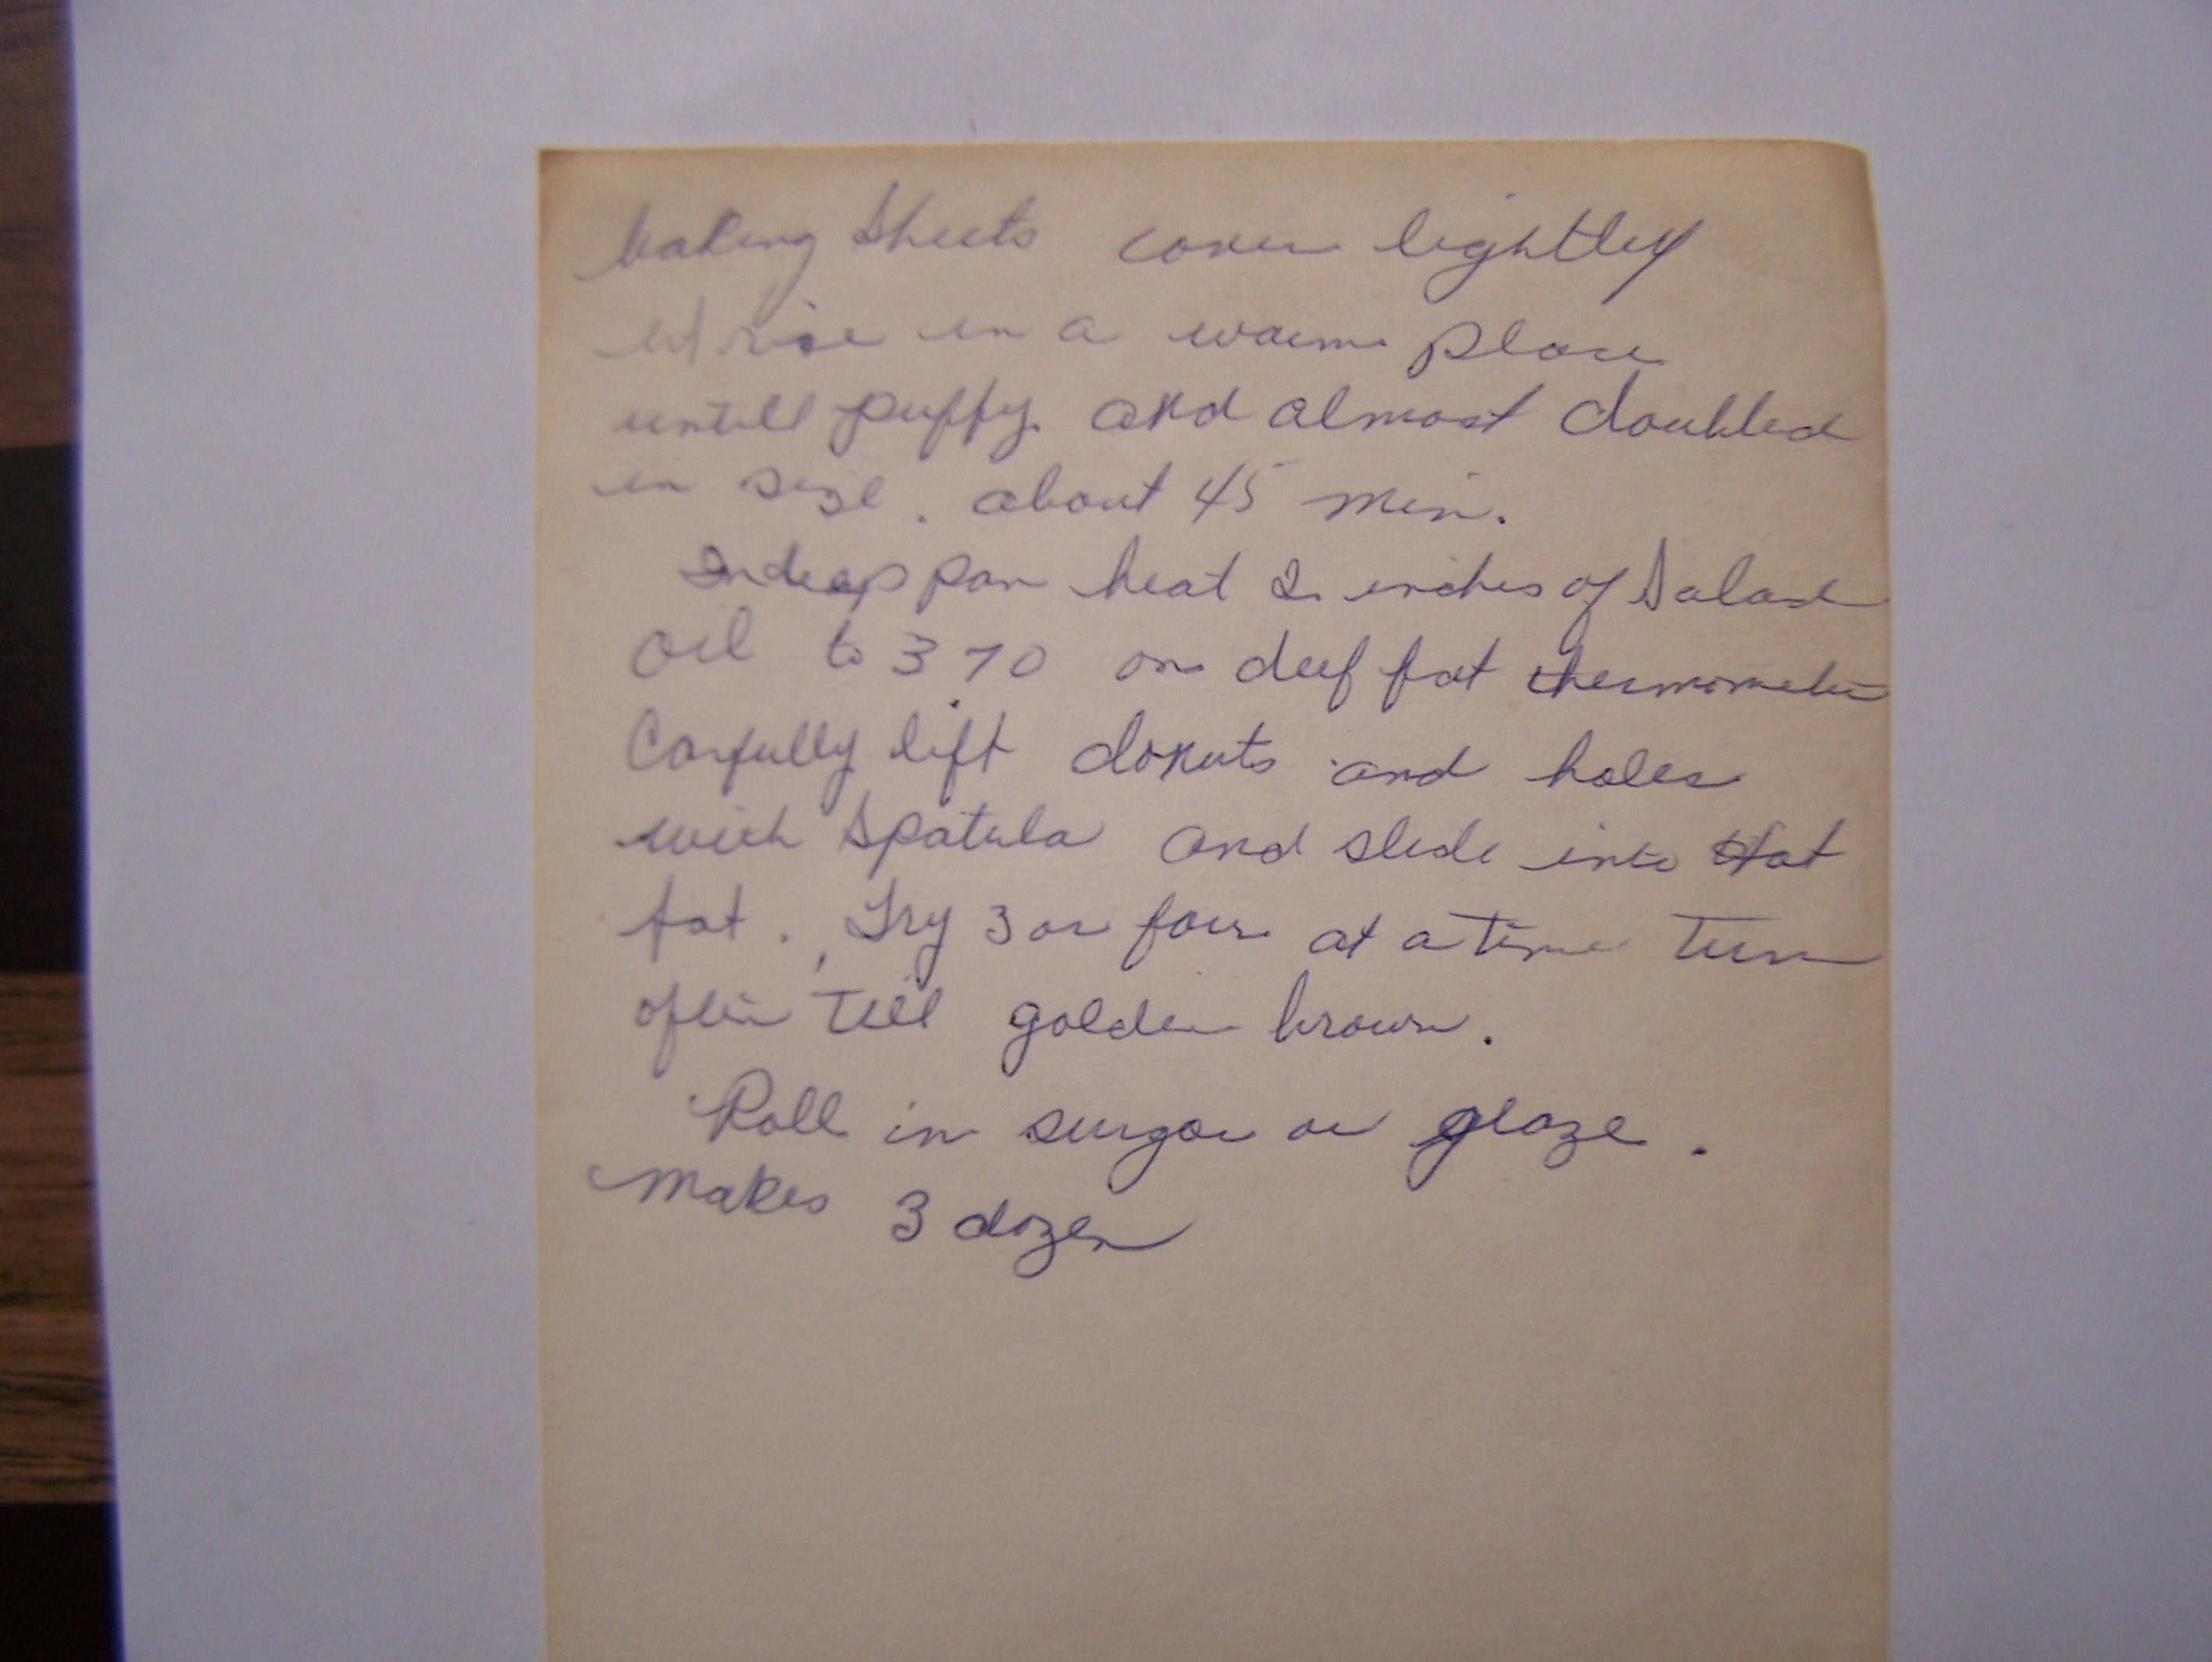 baking sheets cover lightley
let rise in a warm place
untill puffy and almost doubled
in size. about 45 min.
In deep pan heat 2 inches of Salad
oil to 370 on deep fat thermometer
Carfully lift donuts and holes
with spatula and slide into Hot
fat. Fry 3 or four at a time Turn
often Till golden brown.
Roll in sugar or glaze.
Makes 3 dozen